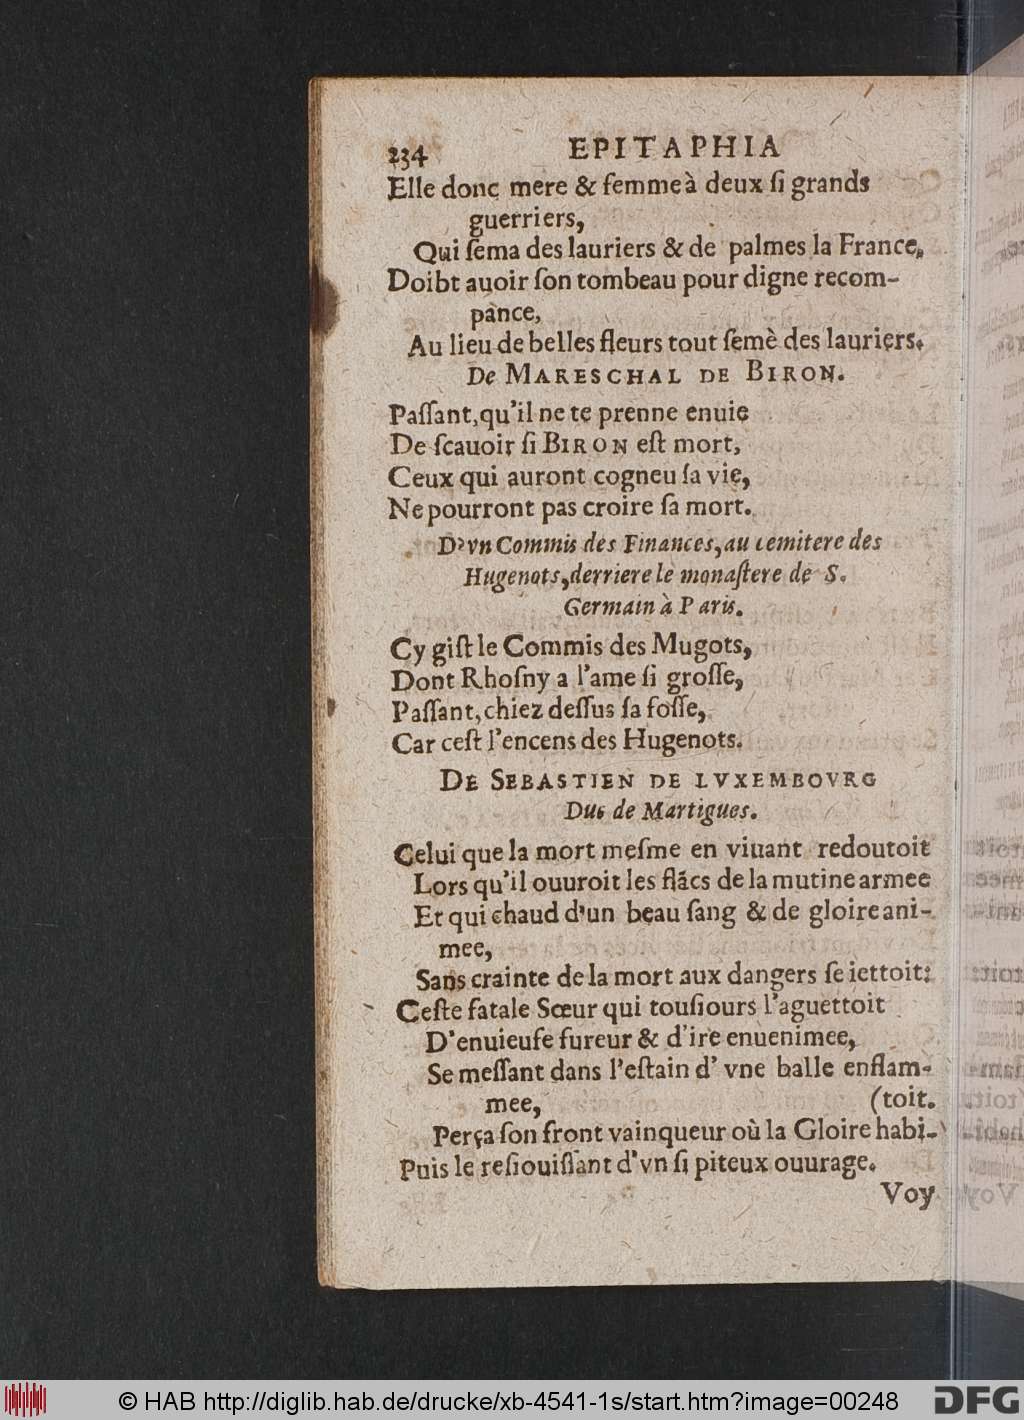 234 EPITAPHIA
Elle donc mere & femme à deux ſi grands
guerriers,
Qui ſema des lauriers & de palmes la France,
Doibt auoir ſon tombeau pour digne recom-
pance,
Au lieu de belles fleurs tout ſemè des lauriers.
De MARESCHAL DE BIRON.
Paſſant, qu'il ne te prenne enuie
De ſcauoir ſi BIRON eſt mort,
Ceux qui auront cogneu ſa vie,
Ne pourront pas croire ſa mort.
D'vn Commis des Finances, au cemitere des
Hugenots, derriere le monaſtere de S.
Germain à Paris.
Cy giſt le Commis des Mugots,
Dont Rhoſny a l'ame ſi groſſe,
Paſſant, chiez deſſus ſa foſſe,
Car ceſt l'encens des Hugenots.
DE SEBASTIEN DE LVXEMBOVRG
Duc de Martigues.
Celui que la mort meſme en viuant redoutoit
Lors qu'il ouuroit les flãcs de la mutine armee
Et qui chaud d'un beau ſang & de gloire ani-
mee,
Sans crainte de la mort aux dangers ſe iettoit:
Ceſte fatale Sœur qui touſiours l'aguettoit
D'enuieuſe fureur & d'ire enuenimee,
Se meſſant dans l'eſtain d' vne balle enflam-
mee, (toit.
Perça ſon front vainqueur où la Gloire habi-
Puis le reſiouiſſant d'vn ſi piteux ouurage.
Voy
© HAB http://diglib.hab.de/drucke/xb-4541-1s/start.htm?image=00248
DFG